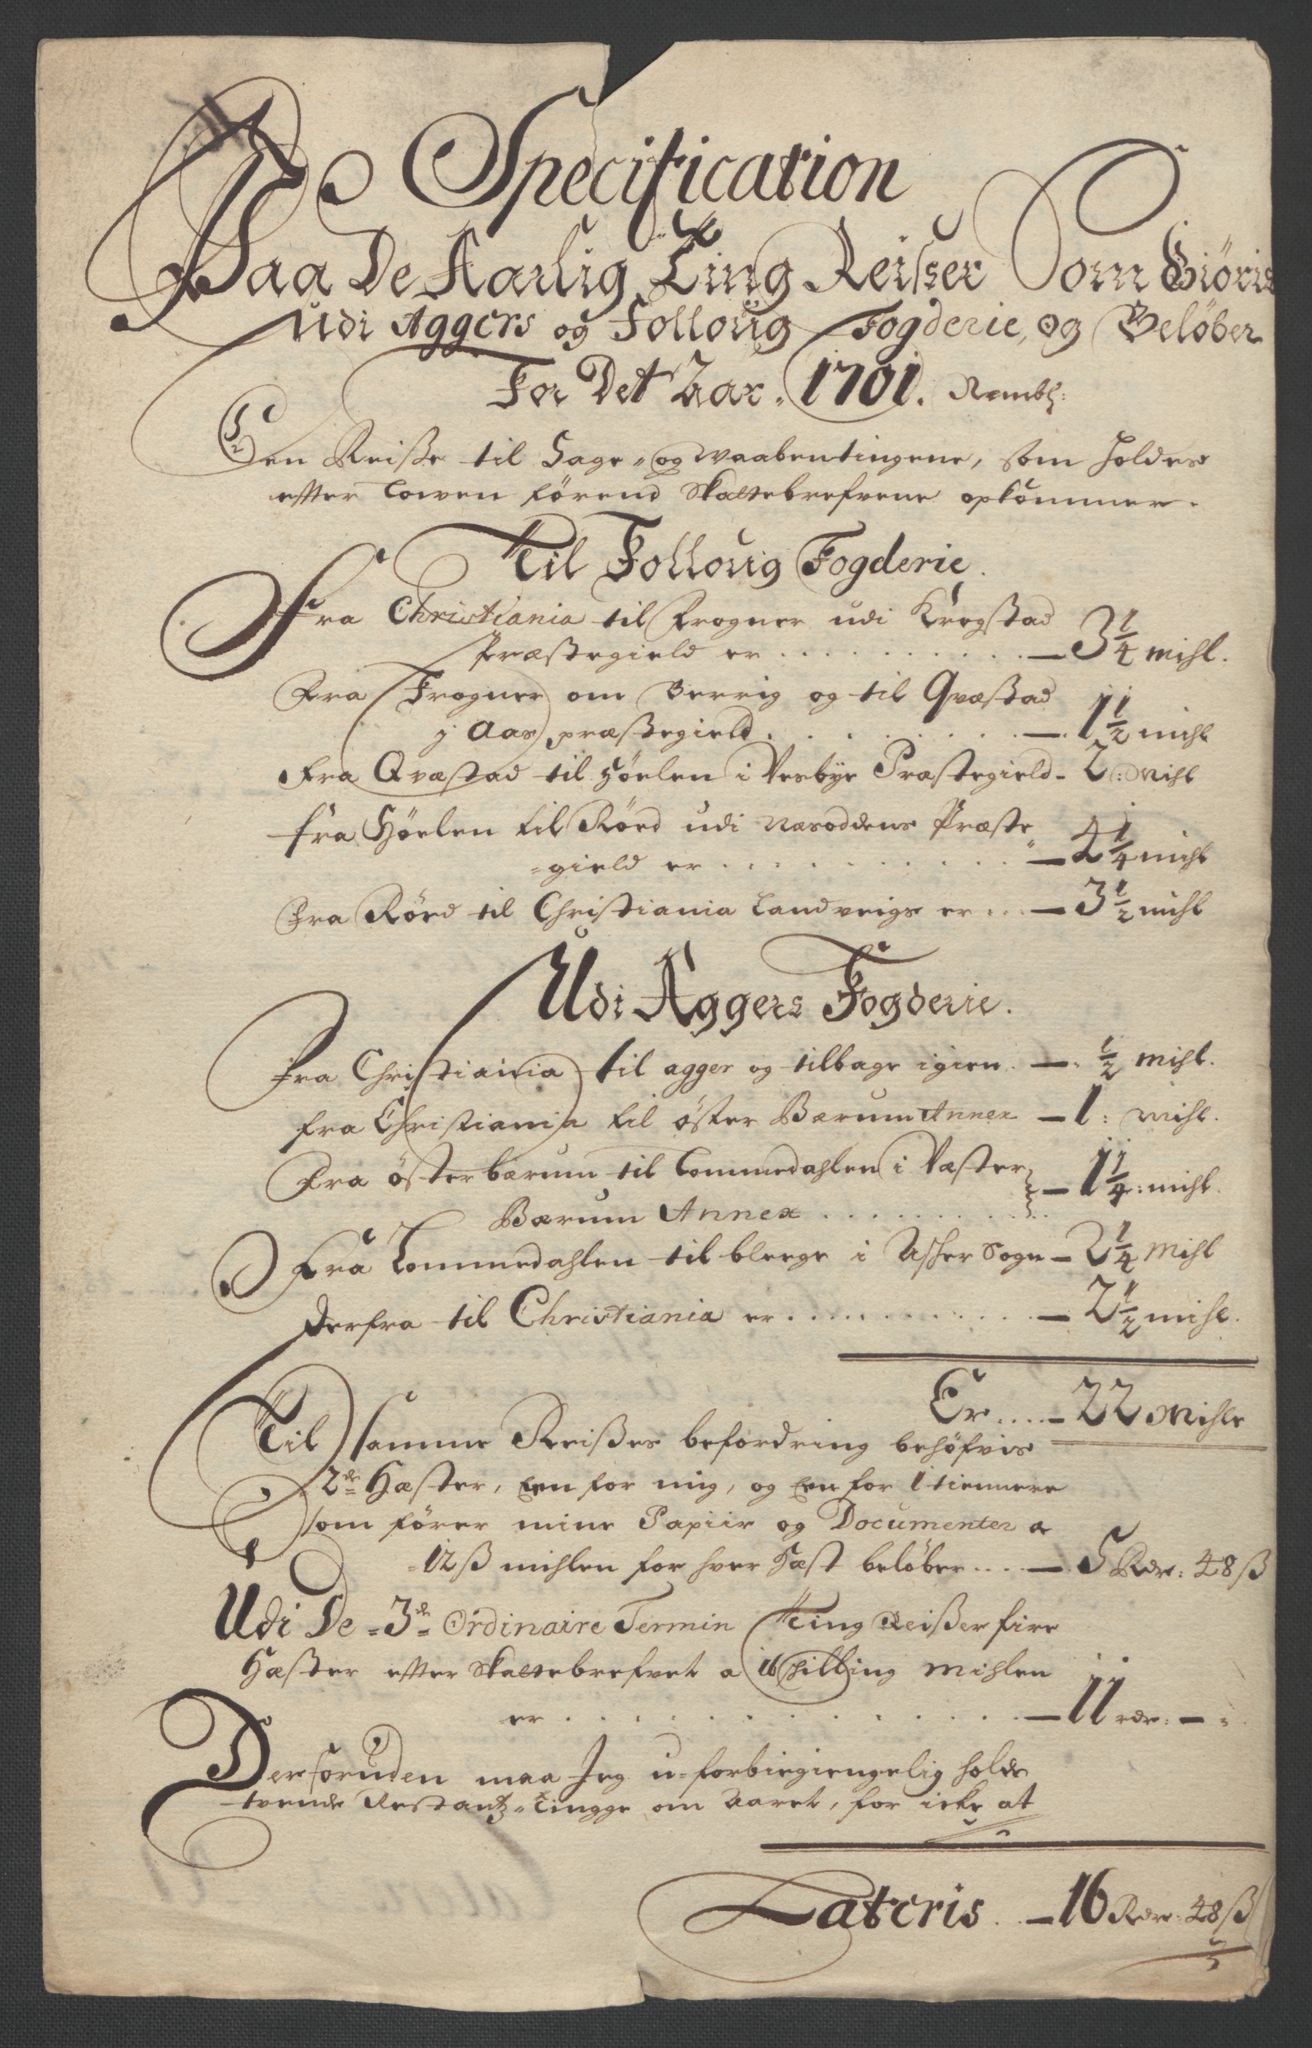 Specification
Paa De Aarlig Ting Reisser Som Giøris
udi Aggers og Follouig Fogderie, og Beløber
For Det Aar. 1701. Nembl:
En Reiße til Sage- og Waabentingene, som holdes
efter Lowen førend Skattebrefvene opkommer.
Til Follouig Fogderie.
Fra Christiania til Frogner udi Krogstad
Præstegield er . . . . . . . . . . — 3 1/4 mihl.
Fra Frogner om Berrig og til Qvæstad
j Aas præstegield . . . . . . . . — 1 1/2 mihl
Fra Qvæstad til Høelen i Vesbye Præstegield - 2 : Mihl
fra Høelen til Rörd udi Næsoddens Præste
=gield er . . . . . . . . . . — 4 1/4 mihl
Fra Rörd til Christiania Landveigs er ... — 3 1/2 mihl
Udi Aggers Fogderie.
Fra Christiania til agger og tilbage igien . — . 1/2 mihl.
fra Christiania til øster Bærum Annex — 1 : mihl.
Fra österbærum til Lommedahlen i Væster
Bærum Annex . . . . . . . . . — 1 1/4 : mihl.
Fra Lommedahlen til bleege i Asker Sogn — 2 1/4 Mihl
derfra til Christiania er . . . . . . . . . . — 2 1/2 mihl.
Er .... — 22 Mihle
Til samme Reißes befordring behöfvis
2de Hæster, Een for mig, og Een for 1 tiennere
som fører mine Papiir og Documenter a
12 ß mihlen for hver Hæst beløber .... — 5 Rdr: 48 ß
Udi De = 3de Ordinaire Termin Ting Reißer fire
Hæster efter Skattebrefvet a 12 Shilling Mihlen
er . . . . . . . . . . . . . . — 11 rdr: — :
Der foruden maa Jeg u-forbiegiengelig holde
tvende Restantz-Tingge om Aaret, for icke at
Lateris . . — 16 Rdr: 48 ß